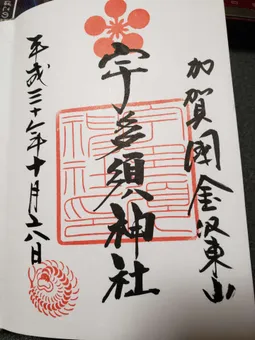 加賀國金沢東山
宇多須神社
平成三十年十月六日